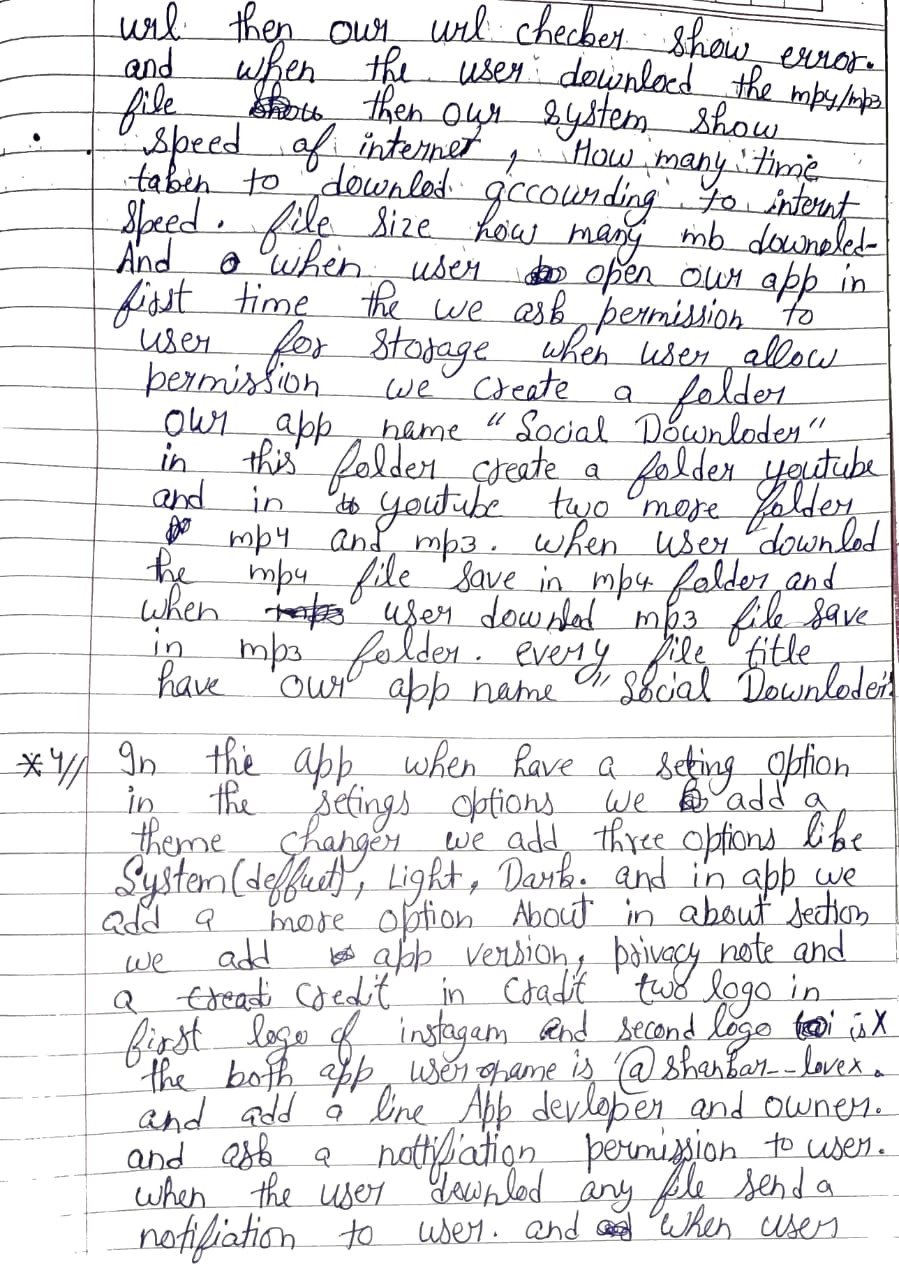 url then our url checker show error.
and when the user downlocd the mpy/mp3
file then our system show
speed of internet, How many time
taken to downlod accounding to internt
speed. file size how many mb downoled-
And when user open our app in
first time the we ask permission to
user for storage when user allow
permission we create a folder
our app name "Social Downloder"
in this folder create a folder youtube
and in youtube two more folder
mp4 and mp3. when user downlod
the mp4 file save in mp4 folder and
when user downlod mp3 file save
in mp3 folder. every file title
have our app name "Social Downloder"
*4// In the app when have a seting option
in the setings options we add a
theme changer we add three options like
System(deffuet), Light, Dark. and in app we
add a more option About in about section
we add app version, privacy note and
a credit in cradit two logo in
first logo of instagam and second logo is X
the both app username is '@shankar--lovex.
and add a line App devloper and owner.
and ask a nottifiation permission to user.
when the user downlod any file send a
notifiation to user. and when user